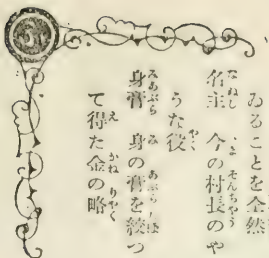 ゐることを全然
名主 今の村長のや
うた役、
身膏 身の膏を絞つ
て得た金の略